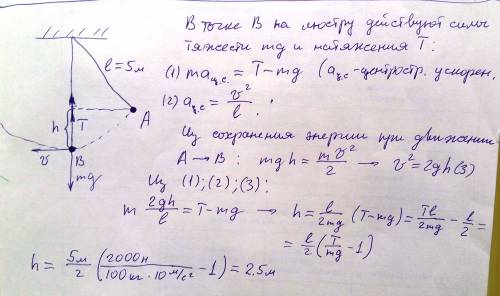 В точке В на люстру действуют силы
тяжести mg и натяжения T:
(1) ma ц.с. = T - mg (a ц.с - центростр. ускорен.
(2) a ц.с = v²/l .
Из сохранения энергии при движении
A → B : mgh = mv²/2 → v² = 2gh (3)
Из (1); (2); (3):
m 2gh/l = T - mg → h = l/2mg (T - mg) = Tl/2mg - l/2 =
= l/2 (T/mg - 1)
h = 5м/2 (2000н/100кг · 10 м/с² - 1) = 2,5м
l = 5м
h
T
A
v
B
mg